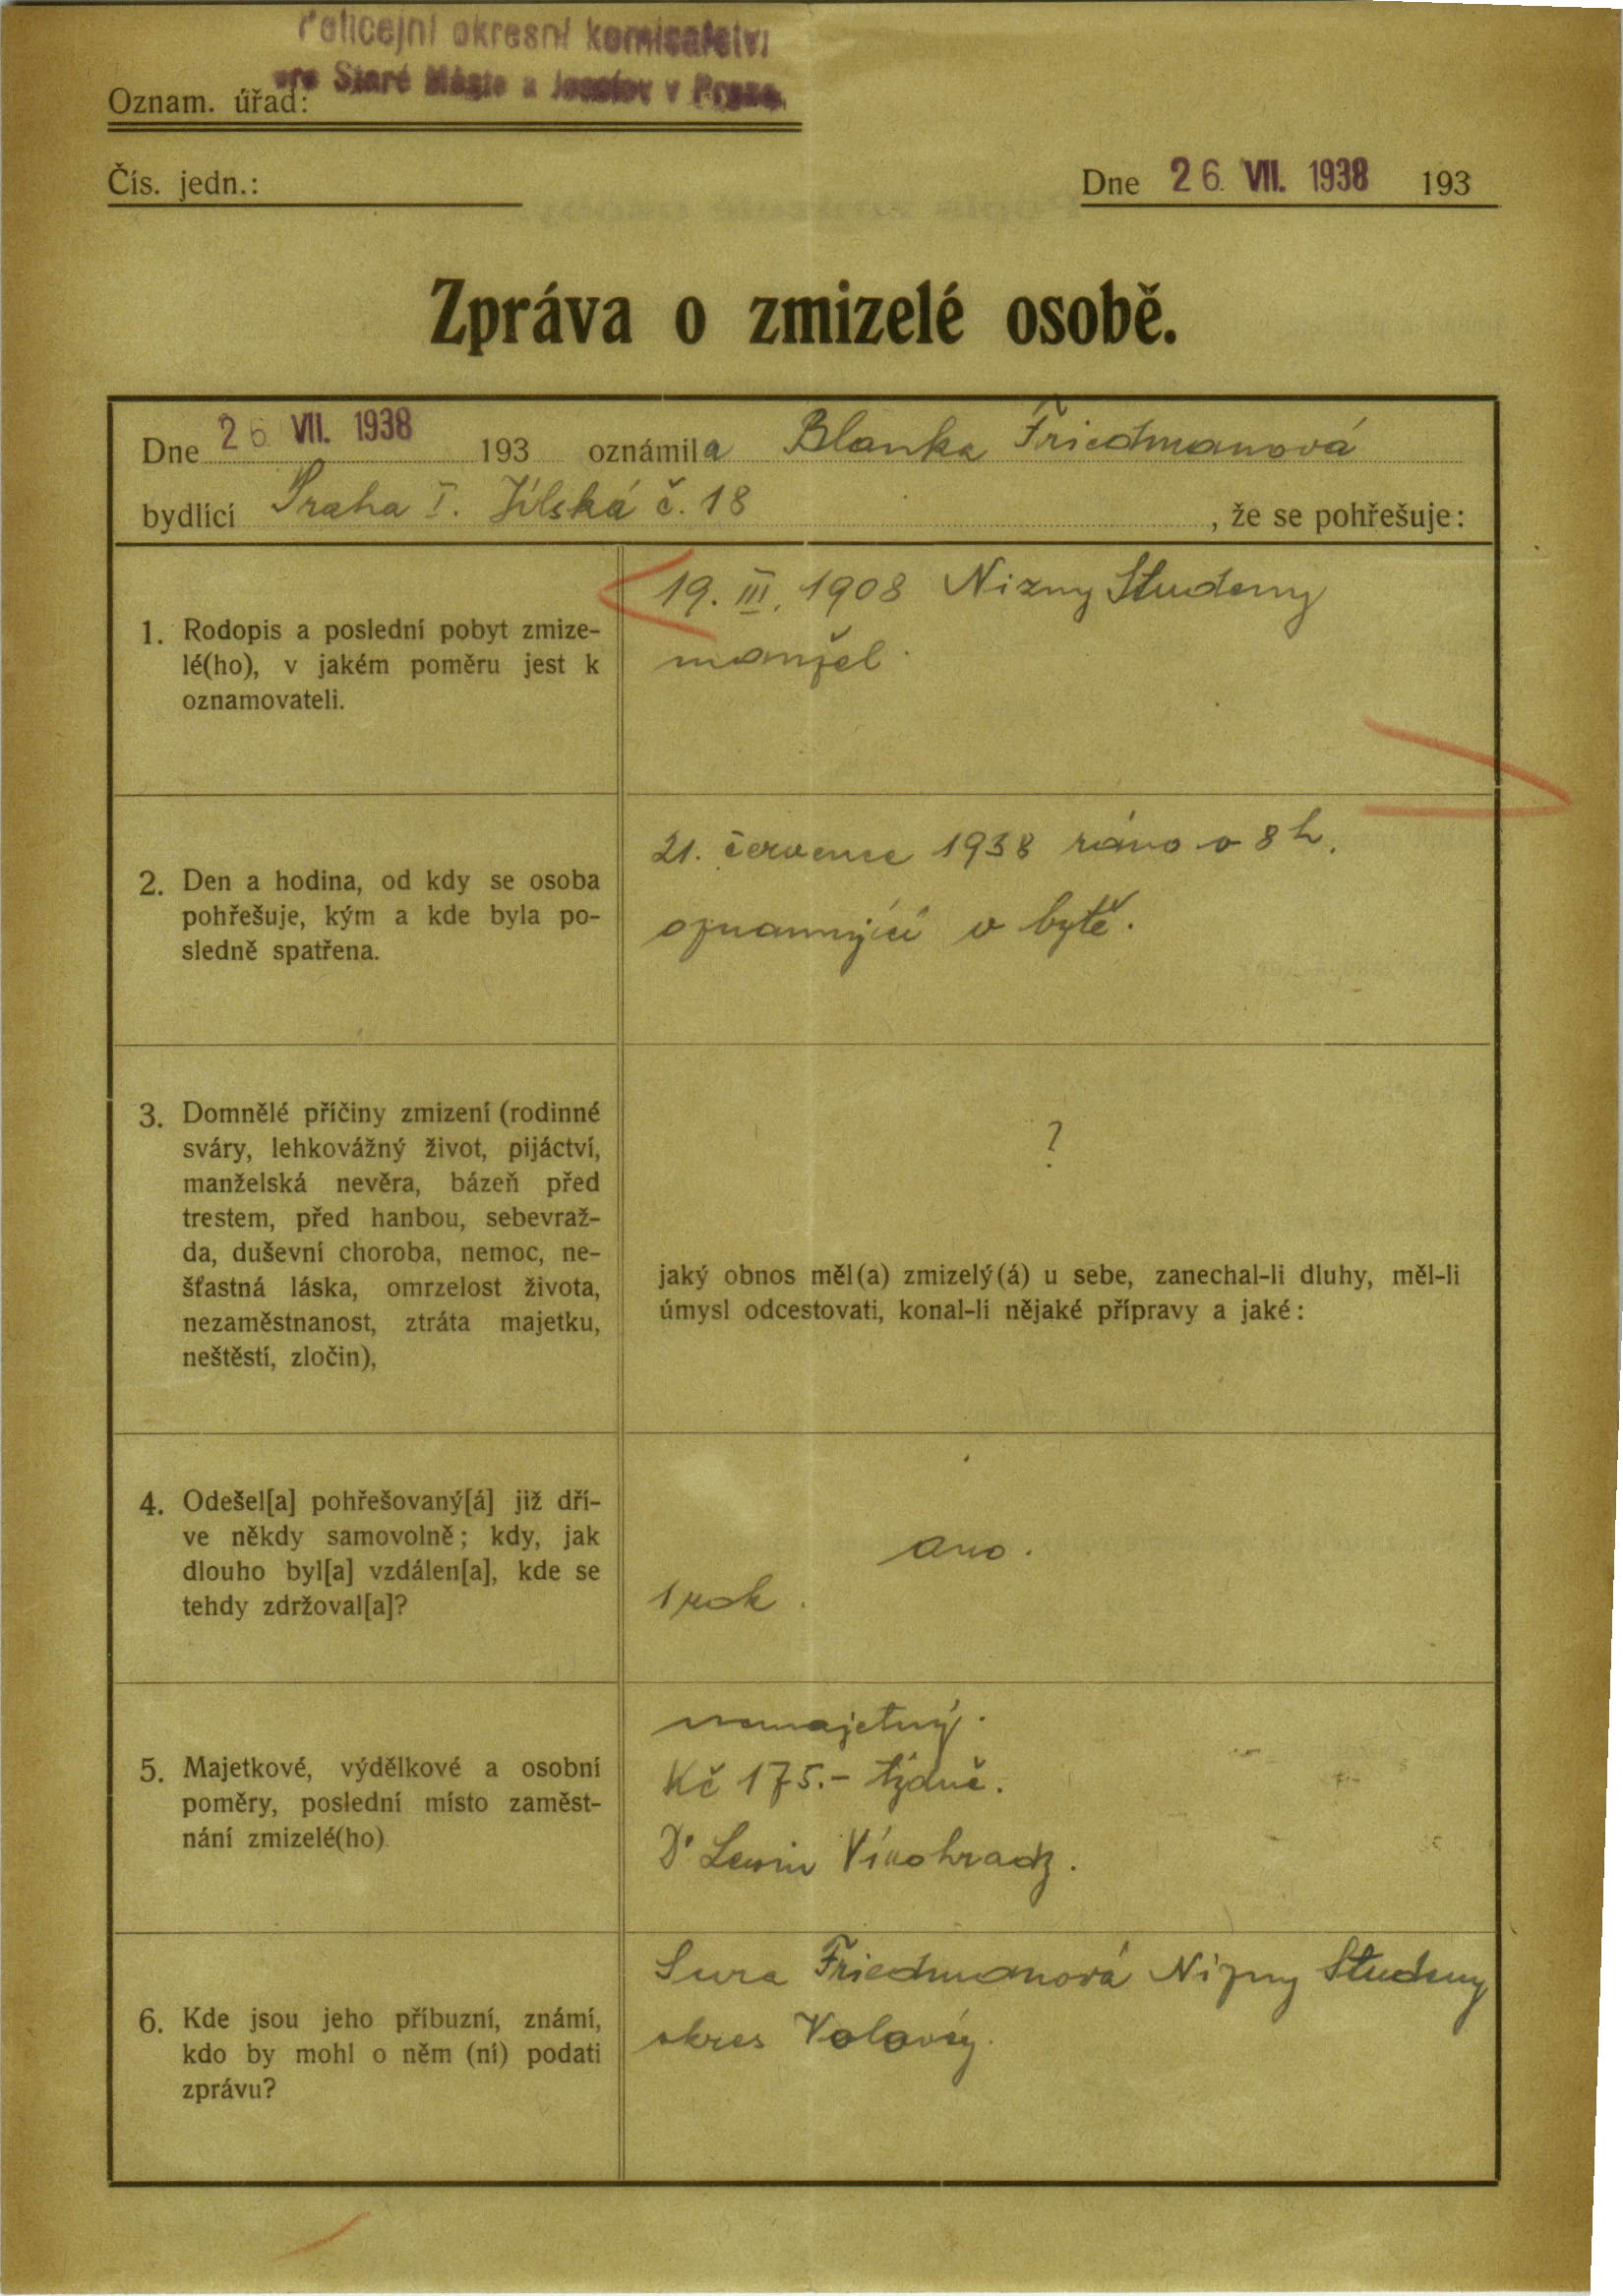 Policejní okresní komisařství
pro Staré Město a Josefov v Praze.
Oznam. úřad:
Čís. jedn.:
Dne 26. VII. 1938 193
Zpráva o zmizelé osobě.
Dne 26 VII. 1938 193 oznámila Blanka Friedmanová
bydlící Praha I. Jilská č. 18 , že se pohřešuje:
1. Rodopis a poslední pobyt zmize-
lé(ho), v jakém poměru jest k
oznamovateli.
19. III. 1908 Nizny Studeny
manžel.
2. Den a hodina, od kdy se osoba
pohřešuje, kým a kde byla po-
sledně spatřena.
21. července 1938 ráno o 8 h.
oznamující v bytě.
3. Domnělé příčiny zmizení (rodinné
sváry, lehkovážný život, pijáctví,
manželská nevěra, bázeň před
trestem, před hanbou, sebevraž-
da, duševní choroba, nemoc, ne-
šťastná láska, omrzelost života,
nezaměstnanost, ztráta majetku,
neštěstí, zločin),
?
jaký obnos měl(a) zmizelý(á) u sebe, zanechal-li dluhy, měl-li
úmysl odcestovati, konal-li nějaké přípravy a jaké:
4. Odešel[a] pohřešovaný[á] již dří-
ve někdy samovolně; kdy, jak
dlouho byl[a] vzdálen[a], kde se
tehdy zdržoval[a]?
ano.
1 rok.
5. Majetkové, výdělkové a osobní
poměry, poslední místo zaměst-
nání zmizelé(ho)
nemajetný.
Kč 175.- týdně.
Dr Lewin Vinohrady.
6. Kde jsou jeho příbuzní, známí,
kdo by mohl o něm (ní) podati
zprávu?
Sura Friedmanová Nizny Studeny
okres Volový.